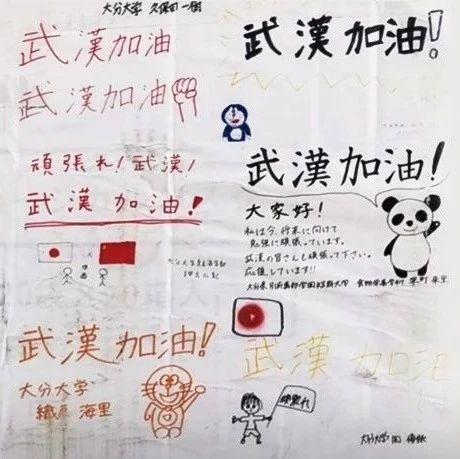 大分大学 久保田 一樹
武漢加油
武漢加油
頑張れ!武漢!
武漢加油!
武漢加油!
大分大学
織原 海里
武漢加油!
武漢加油!
大家好!
私は今、将来に向けて
勉強に頑張っています。
武漢の皆さんも頑張って下さい。
応援しています!!
武漢加油!
頑張れ
大分大学